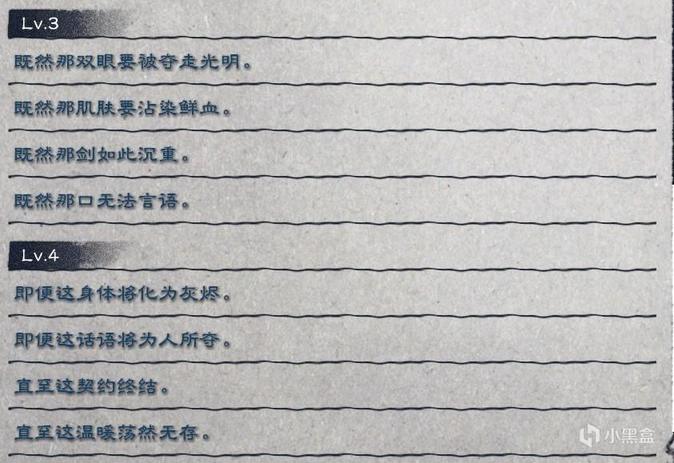 Lv.3
既然那双眼要被夺走光明。
既然那肌肤要沾染鲜血。
既然那剑如此沉重。
既然那口无法言语。
Lv.4
即便这身体将化为灰烬。
即便这话语将为人所夺。
直至这契约终结。
直至这温暖荡然无存。
小黑盒